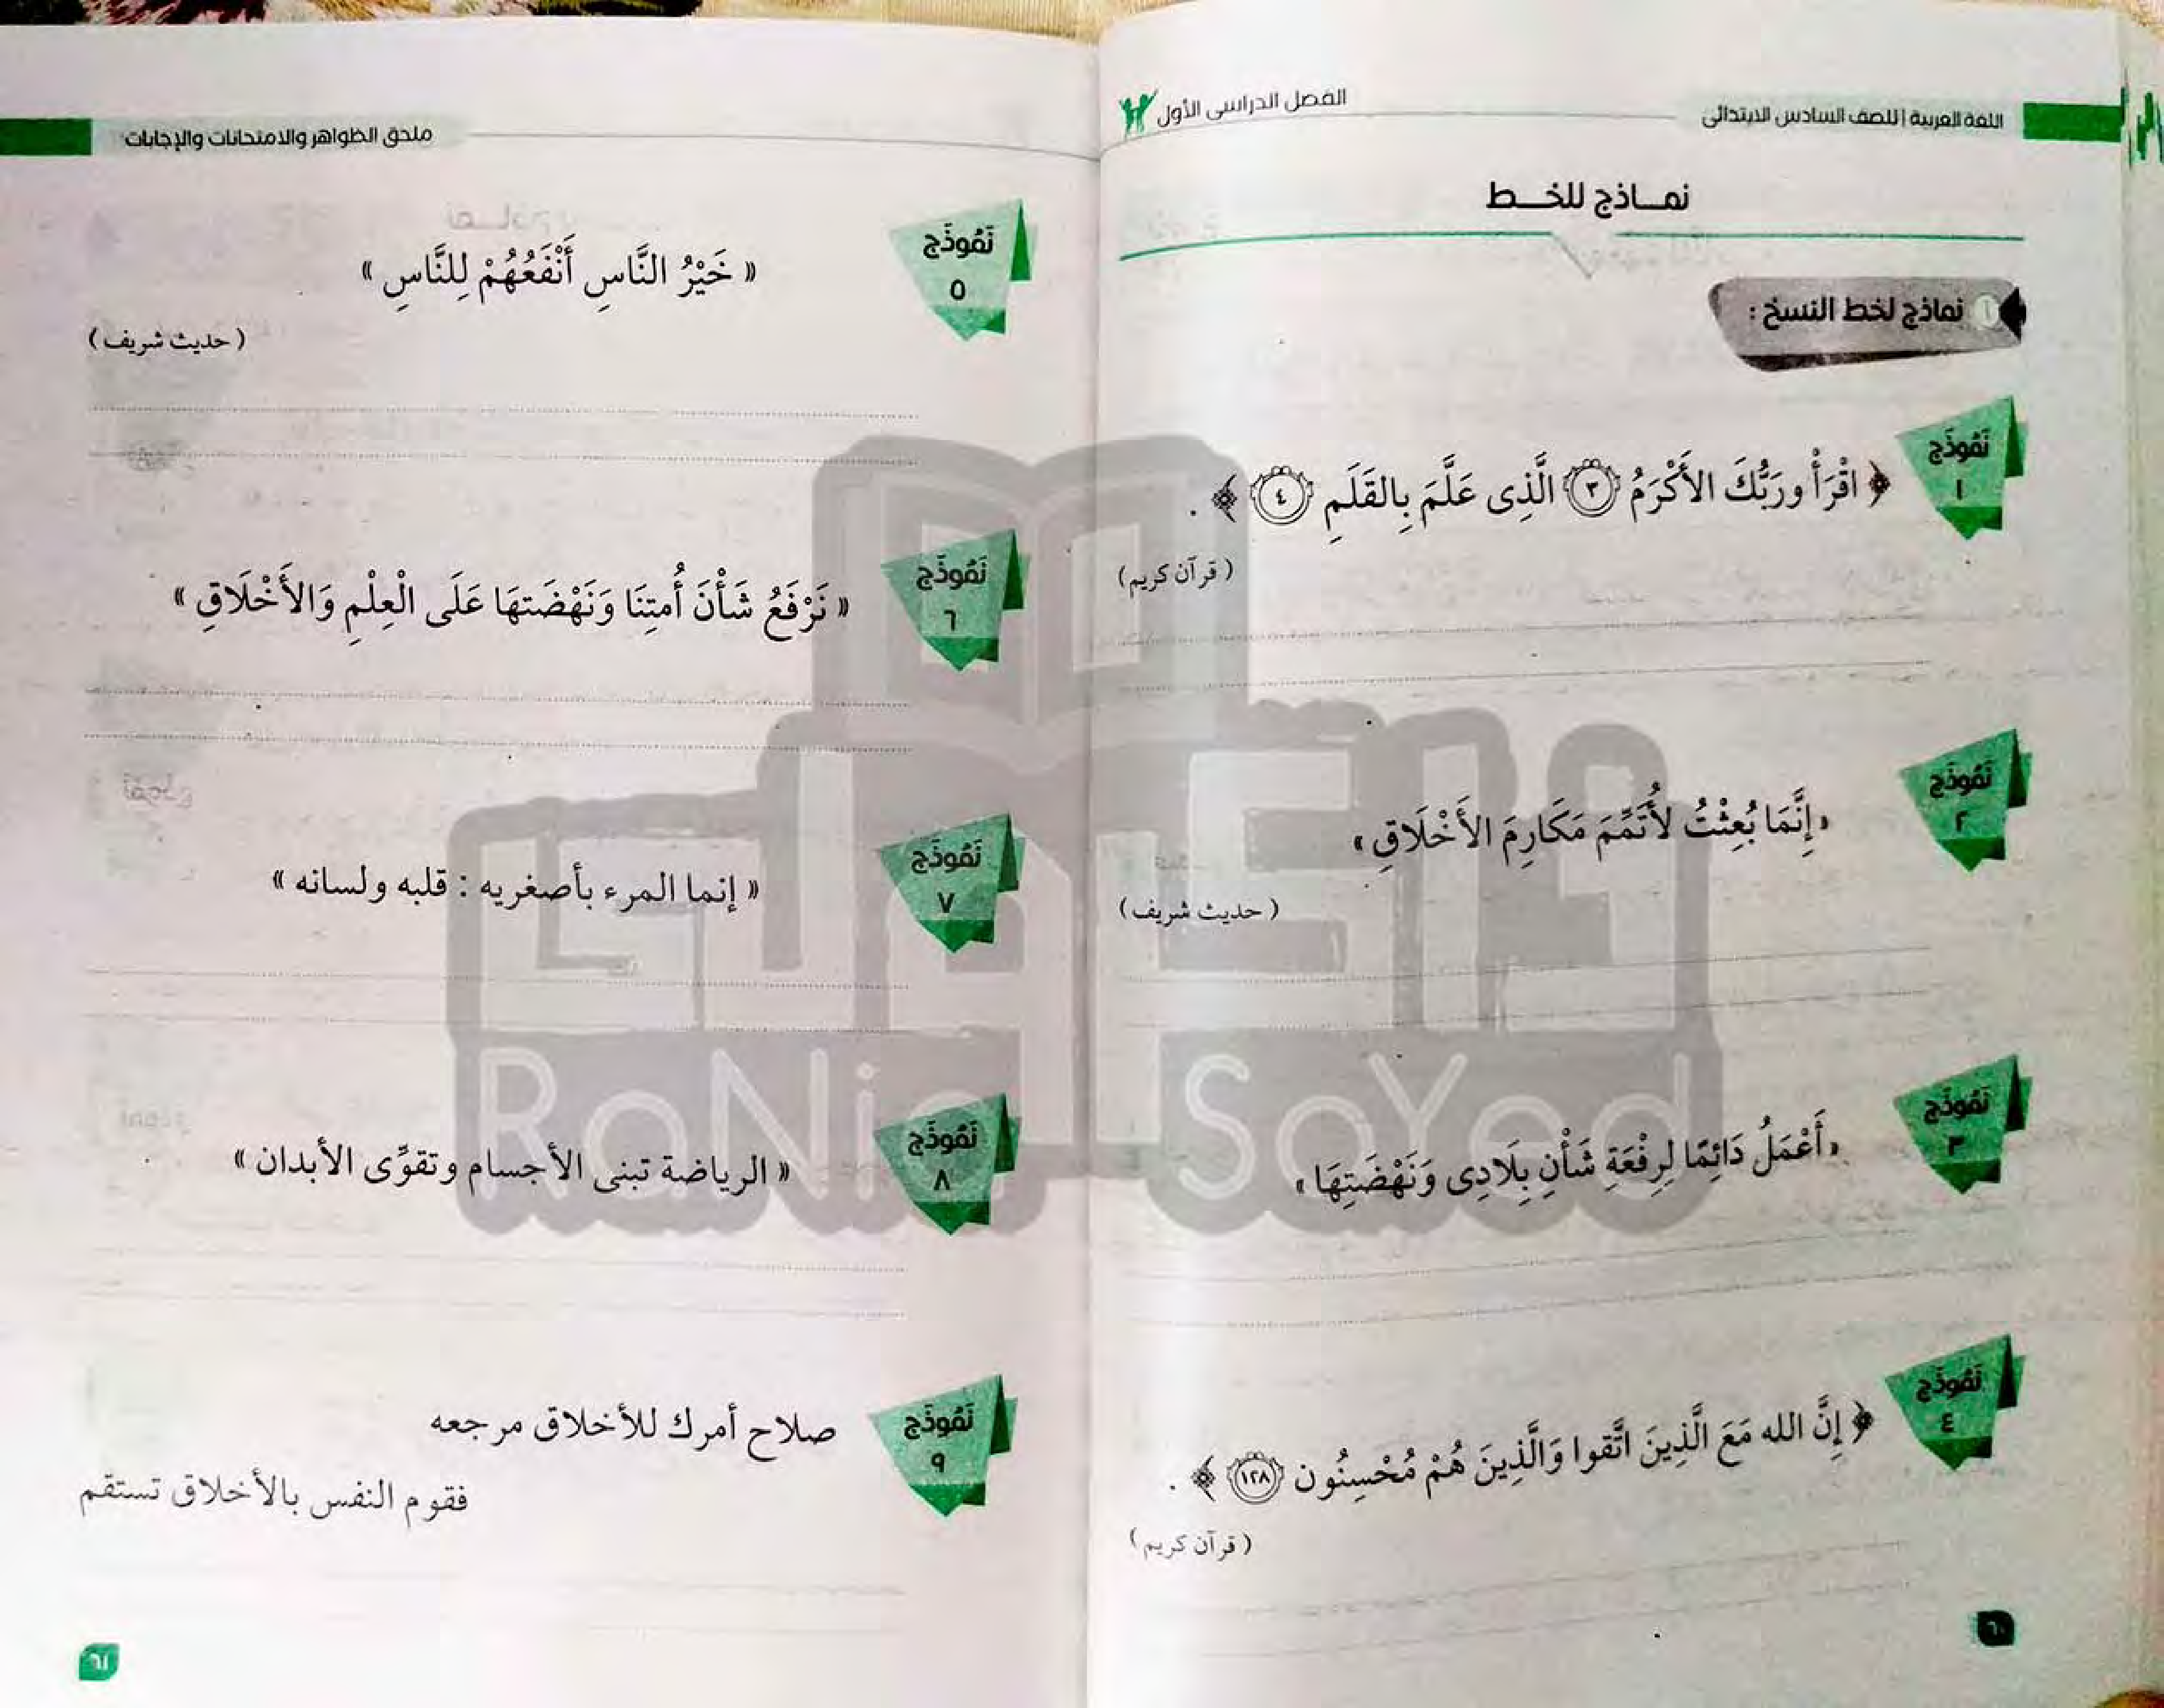 اللغة العربية | للصف السادس الابتدائى
الفصل الدراسى الأول
نمـــاذج للخـــط
١ نماذج لخط النسخ :
نَمُوذَج
١
﴿ اقْرَأْ ورَبُّكَ الأَكْرَمُ ٣ الَّذِى عَلَّمَ بِالقَلَمِ ٤ ﴾ .
( قرآن كريم )
نَمُوذَج
٢
« إِنَّمَا بُعِثْتُ لأُتَمِّمَ مَكَارِمَ الأَخْلَاقِ »
( حديث شريف )
نَمُوذَج
٣
« أَعْمَلُ دَائِمًا لِرِفْعَةِ شَأْنِ بِلَادِى وَنَهْضَتِهَا »
نَمُوذَج
٤
﴿ إِنَّ الله مَعَ الَّذِينَ اتَّقوا وَالَّذِينَ هُمْ مُحْسِنُون ١٢٨ ﴾ .
( قرآن كريم )
٦٠
ملحق الظواهر والامتحانات والإجابات
نَمُوذَج
٥
« خَيْرُ النَّاسِ أَنْفَعُهُمْ لِلنَّاسِ »
( حديث شريف )
نَمُوذَج
٦
« نَرْفَعُ شَأْنَ أُمتِنَا وَنَهْضَتهَا عَلَى الْعِلْمِ وَالأَخْلَاقِ »
نَمُوذَج
٧
« إنما المرء بأصغريه : قلبه ولسانه »
نَمُوذَج
٨
« الرياضة تبنى الأجسام وتقوِّى الأبدان »
نَمُوذَج
٩
صلاح أمرك للأخلاق مرجعه
فقوم النفس بالأخلاق تستقم
٦١
RaNia SaYed